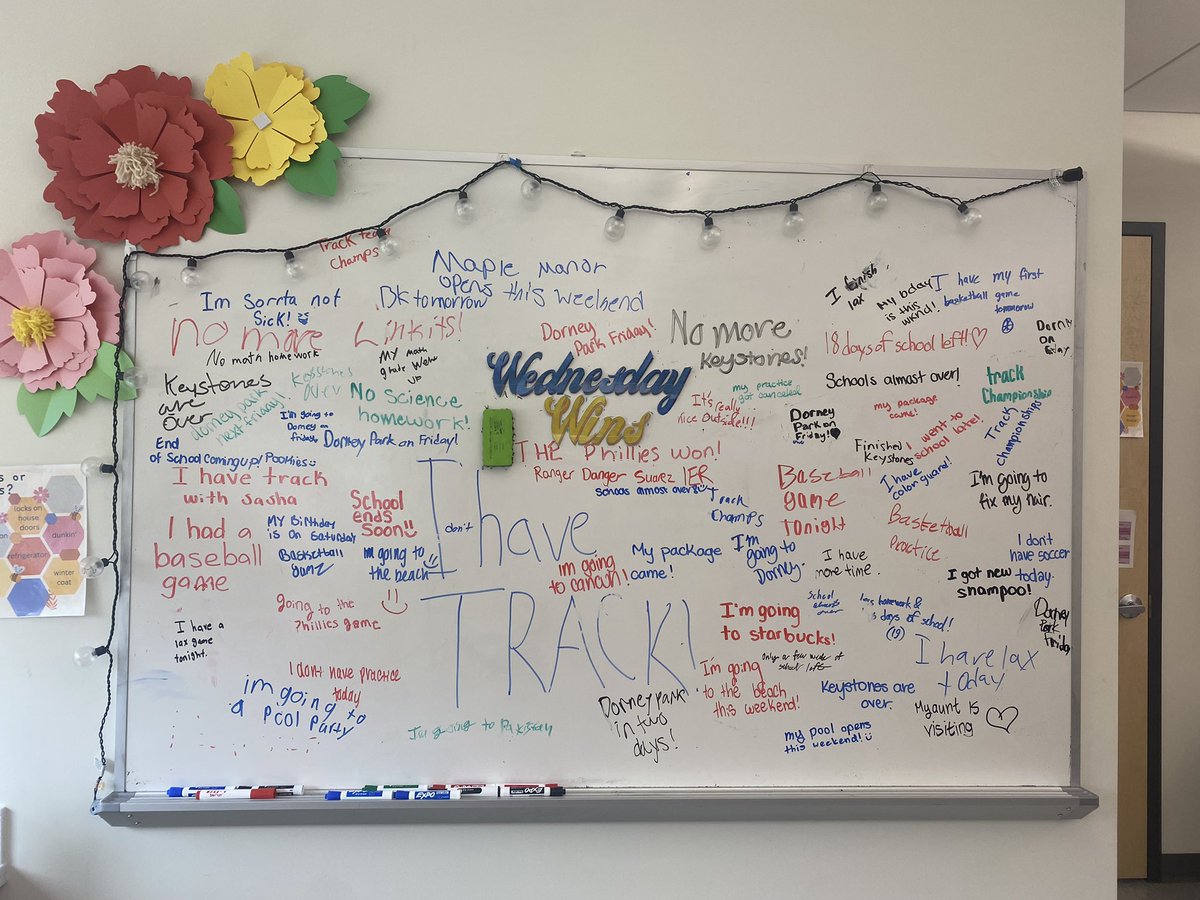 Track team
Champs
Maple Manor
opens this weekend
BK tomorrow
Im Sorrta not
Sick!
No more Linkits!
No math homework
MY math
grade Went
UP
Dorney
Park Friday!
No More
Keystones!
I finish
lax
My bday
is this
wknd!!
I have my first
basketball game
tomorrow
18 days of school left!
Dorney
on
friday
Keystones
are
over
Keystones
dorney park
next friday!
I'm going to
Dorney on
friday
No Science
homework!
Dorney Park on Friday!
Wednesday
Wins
my practice
got canceled
It's really
nice outside!!!
Dorney
Park on
Friday!
Schools almost over!
my package
came!
track
Championship
Finished
Keystones
I went to
school late!
Track
championships
End
of School coming up! Pookies
THE Phillies won!
Ranger Danger Suarez
schools almost over!
I have track
with sasha
School
ends
Soon!!
I don't have
TRACK!
Track
Champs
Baseball
game
Tonight
I have
color guard!
I'm going to
fix my hair.
Basketball
Practice
I had a
baseball
game
MY Birthday
is on Saturday
Basketball
game
im going to
the beach
im going
to cancun!
My package
came!
I'm
going to
Dorney
I have
more time.
I don't
have soccer
today.
I got new
shampoo!
going to the
Phillies game
I'm going
to starbucks!
School
almost
over
days of school!
(19)
Dorney
Park
Friday
I have a
lax game
tonight.
Only a few weeks of
school left
I have lax
today
I don't have practice
today
im going to
a pool party
I'm going
to the beach
this weekend!
Keystones are
over.
My aunt is
visiting
I'm going to
Dorney park
in two
days!
my pool opens
this weekend!
locks on
house
doors
dunkin'
refrigerator
winter
coat
EXPO